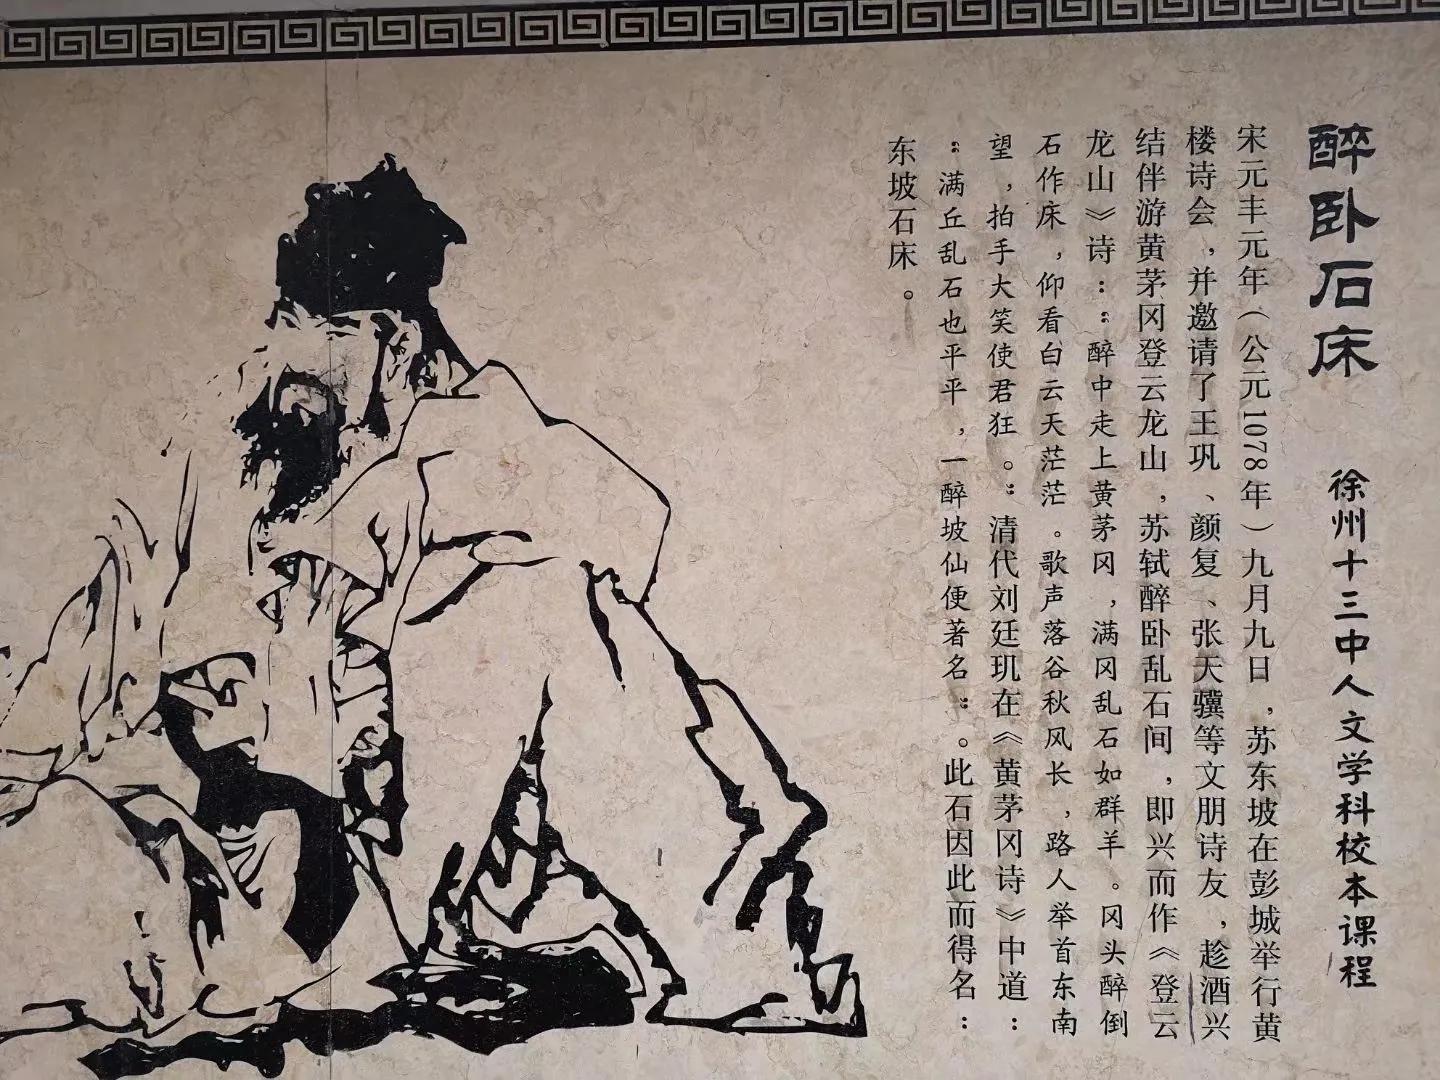 醉卧石床
徐州十三中人文学科校本课程
宋元丰元年（公元1078年）九月九日，苏东坡在彭城举行黄
楼诗会，并邀请了王巩、颜复、张天骥等文朋诗友，趁酒兴
结伴游黄茅冈登云龙山，苏轼醉卧乱石间，即兴而作《登云
龙山》诗：“醉中走上黄茅冈，满冈乱石如群羊。冈头醉倒
石作床，仰看白云天茫茫。歌声落谷秋风长，路人举首东南
望，拍手大笑使君狂。”清代刘廷玑在《黄茅冈诗》中道：
“满丘乱石也平平，一醉坡仙便著名”。此石因此而得名：
东坡石床。